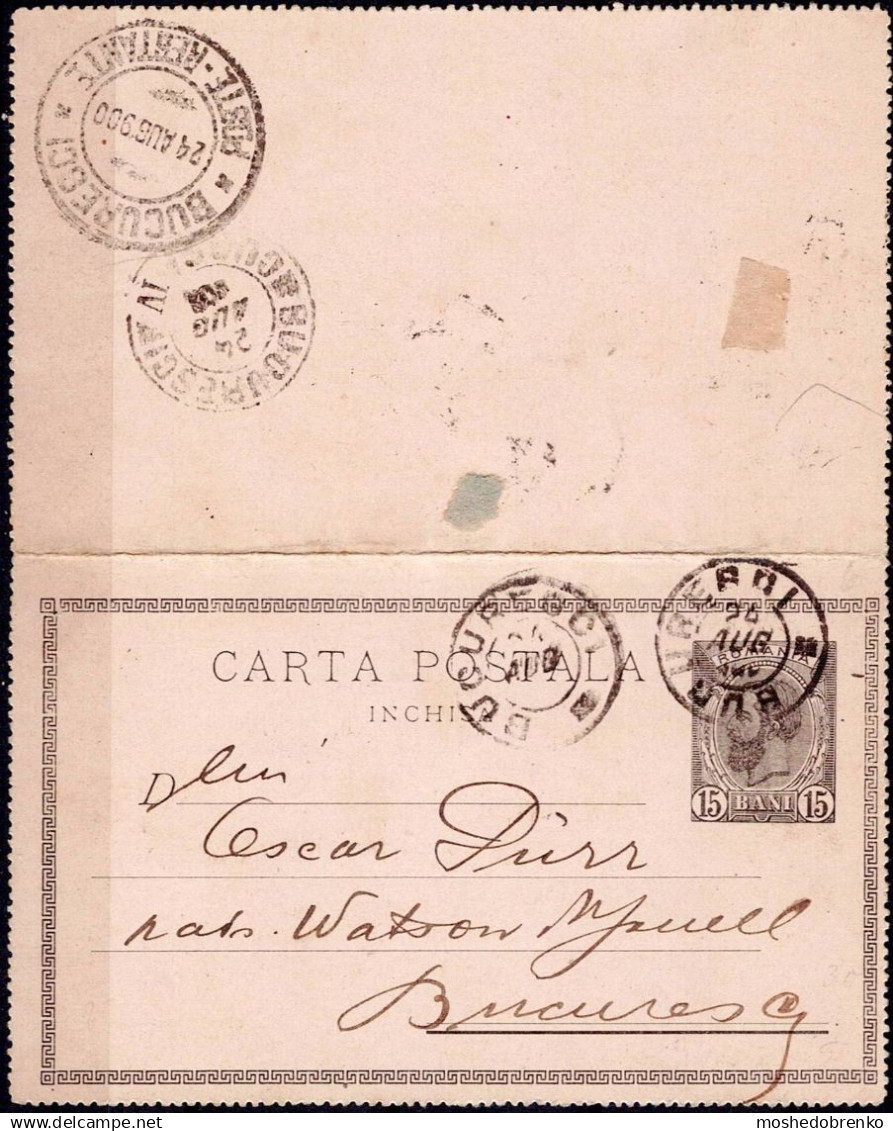 POSTE-RESTANTE * BUCURESCI *
24 AUG 900
BUCURESCI
IV
24
AUG
CARTA POSTALA
INCHISA
BUCURESCI
AUG
BUCURESCI
24
AUG
ROMANIA
15 BANI 15
D
Oscar Dürr
Watson
Bucuresci
moshedobrenko